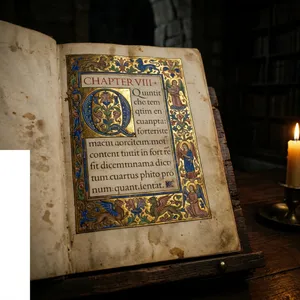 CHAPTER VIII
Quintit
che tem
qtim en
cuanpta:
forteriite
maciu aorcitem.mot
content tintit in fort re
fit dicemtunama dice
tum cuartus phito pro
num: quant.ientat.